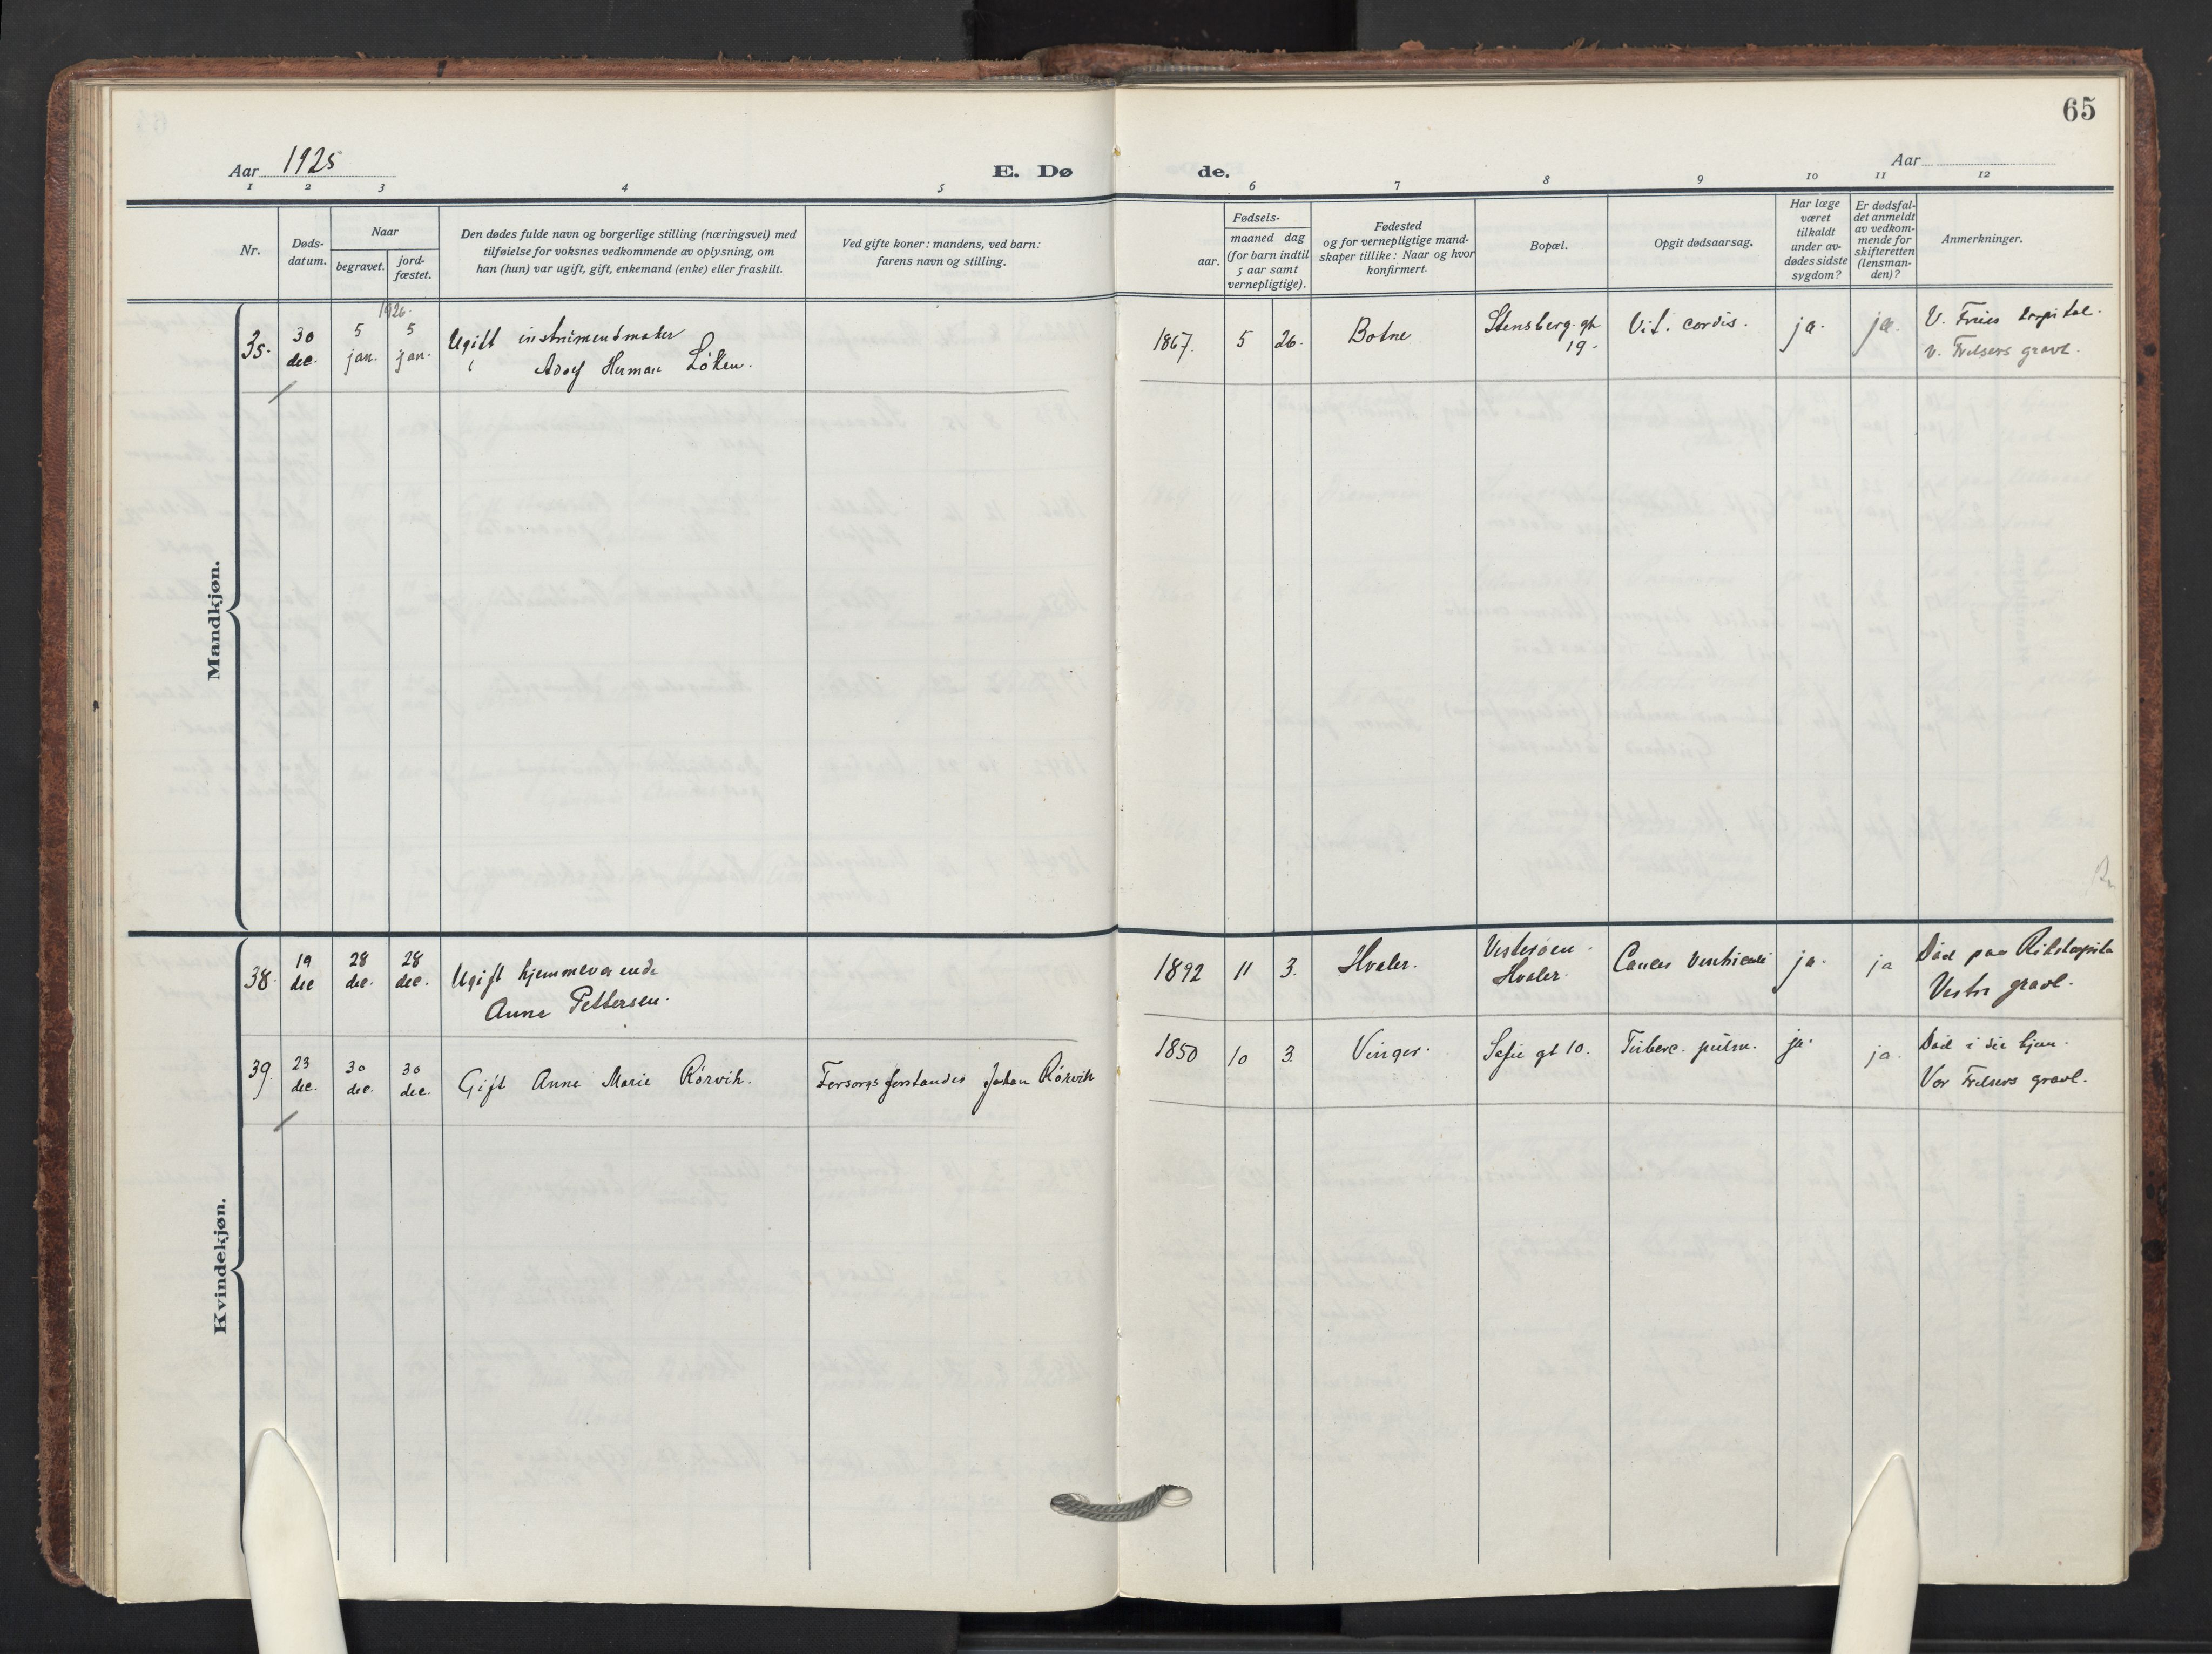 65
Aar 1925
E. Dø
de.
Aar
1 2 3 4 5 6 7 8 9 10 11 12
Nr.
Døds-
datum.
Naar
begravet.
jord-
fæstet.
Den dødes fulde navn og borgerlige stilling (næringsvei) med
tilføielse for voksnes vedkommende av oplysning, om
han (hun) var ugift, gift, enkemand (enke) eller fraskilt.
Ved gifte koner: mandens, ved barn:
farens navn og stilling.
Fødsels-
aar.
maaned dag
(for barn indtil
5 aar samt
vernepligtige).
Fødested
og for vernepligtige mand-
skaper tillike: Naar og hvor
konfirmert.
Bopæl.
Opgit dødsaarsag.
Har læge
været
tilkaldt
under av-
dødes sidste
sygdom?
Er dødsfal-
det anmeldt
av vedkom-
mende for
skifteretten
(lensman-
den)?
Anmerkninger.
Mandkjøn.
35.
30
dec.
1926.
5
jan.
5
jan.
Ugift instrumentmaker
Adolf Herman Löken.
1867. 5 26. Botne
Stensberg. gt
19.
Vit. cordis.
ja.
ja.
V. Frues hospital.
V. Frelsers gravl.
Kvindekjøn.
38.
19
dec
28
dec.
28
dec.
Ugift hjemmeværende
Anne Pettersen.
1892 11 3. Hvaler.
Hvaler.
Cancer ventriculi
ja.
ja
Död paa Rikshospita
Vestre gravl.
39.
23
dec.
30
dec.
30
dec.
Gift Anne Marie Rörvik.
Forsorgsforstander Johan Rörvik
1850 10 3. Vinger.
Sofie gt 10.
Tuberc. pulm.
ja.
ja.
Död i sit hjem.
Vor Frelsers gravl.